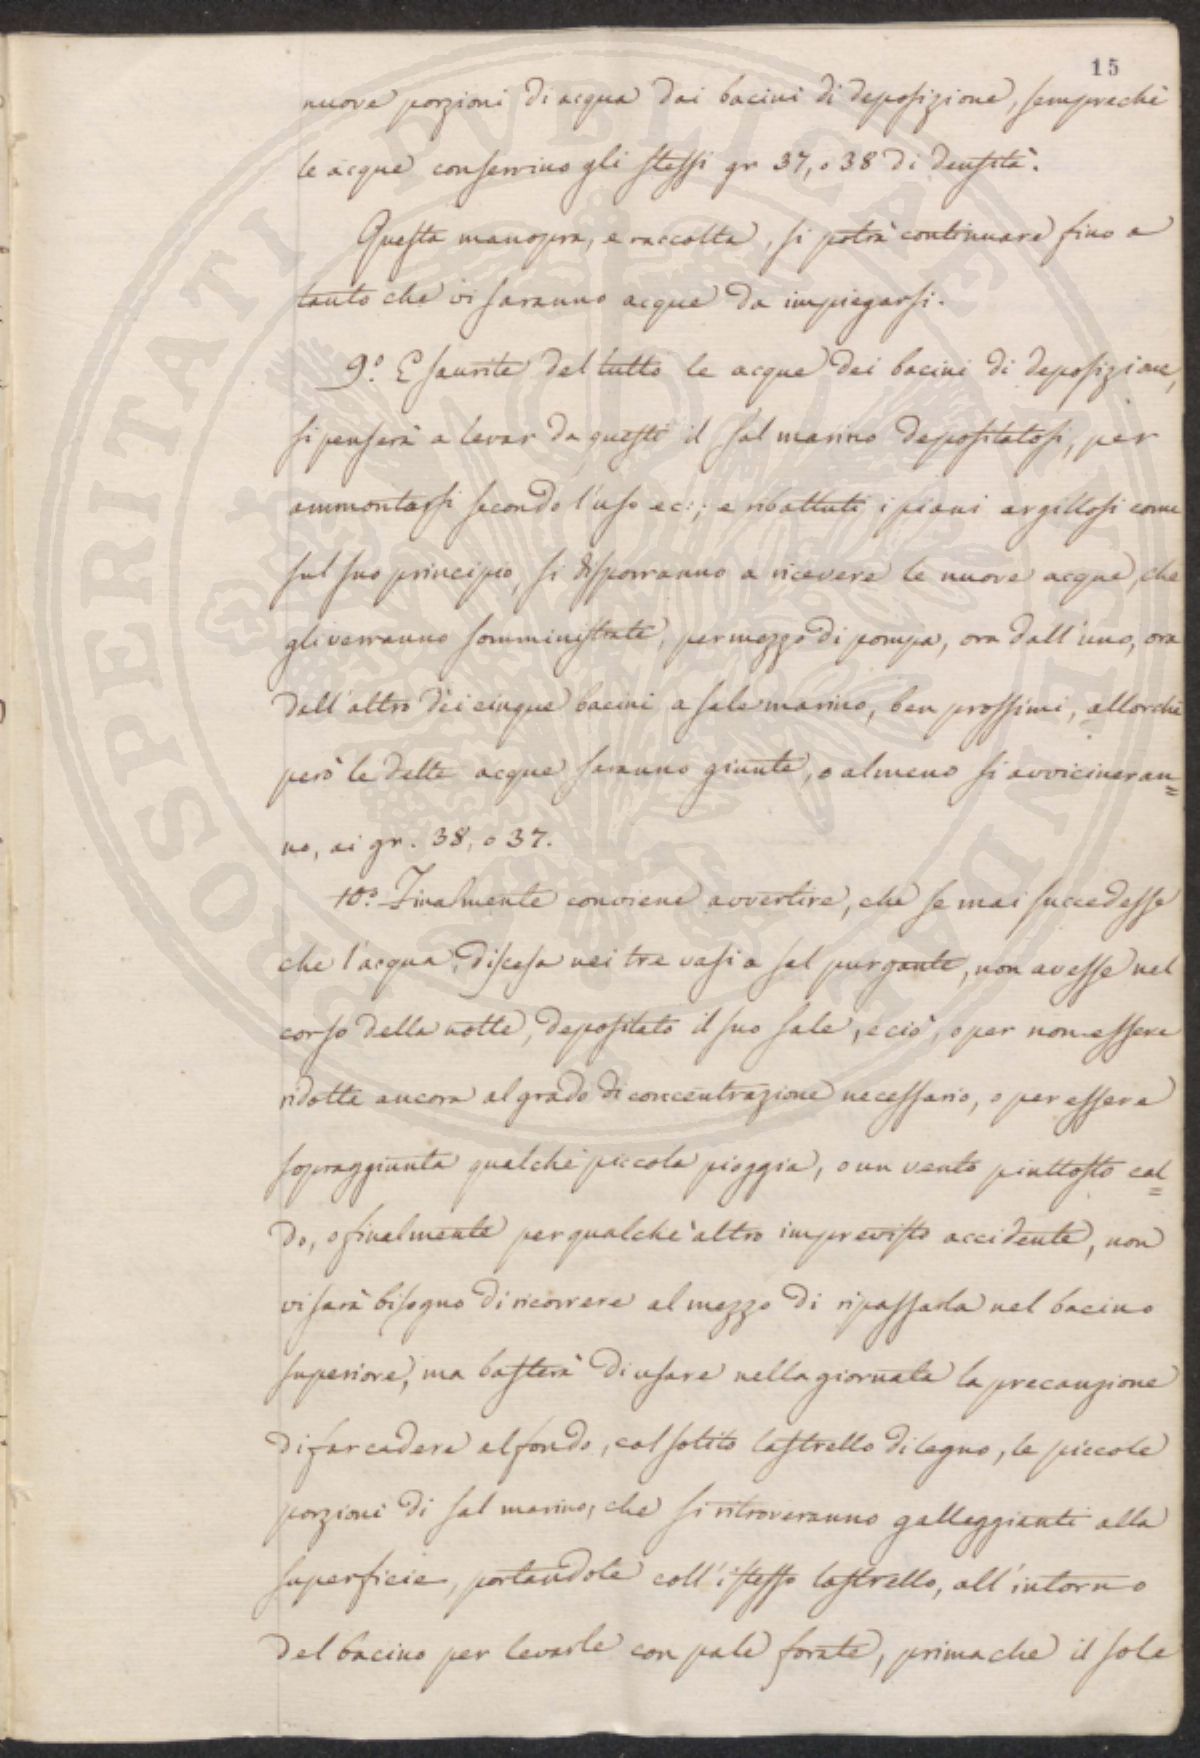 15
nuove porzioni di acqua dai bacini di deposizione, semprechè
le acque conservino gli stessi gr 37, o 38 di densità.
Questa manopra, e raccolta, si potrà continuare fino a
tanto che vi saranno acque da impiegarsi.
9.° Esaurite del tutto le acque dei bacini di deposizione,
si penserà a levar da questi il sal marino depositatosi, per
ammontarsi secondo l'uso ec:; e ribattuti i piani argillosi come
sul suo principio, si disporranno a ricevere le nuove acque, che
gli verranno somministrate, per mezzo di pompa, ora dall'uno, ora
dall'altro dei cinque bacini a sale marino, ben prossimi, allorchè
però le dette acque saranno giunte, o almeno si avvicineran=
no, ai gr. 38, o 37.
10.° Finalmente conviene avvertire, che se mai succedesse
che l'acqua, discesa nei tre vasi a sal purgante, non avesse nel
corso della notte, depositato il suo sale, e ciò, o per non essere
ridotte ancora al grado di concentrazione necessario, o per essere
sopraggiunta qualche piccola pioggia, o un vento piuttosto cal=
do, o finalmente per qualche altro imprevisto accidente, non
vi sarà bisogno di ricorrere al mezzo di ripassarla nel bacino
superiore, ma basterà di usare nella giornata la precauzione
di far cadere al fondo, col solito lastrello di legno, le piccole
porzioni di sal marino, che si ritroveranno galleggianti alla
superficie, portandole coll'istesso lastrello, all'intorno
del bacino per levarle con pale forate, prima che il sole